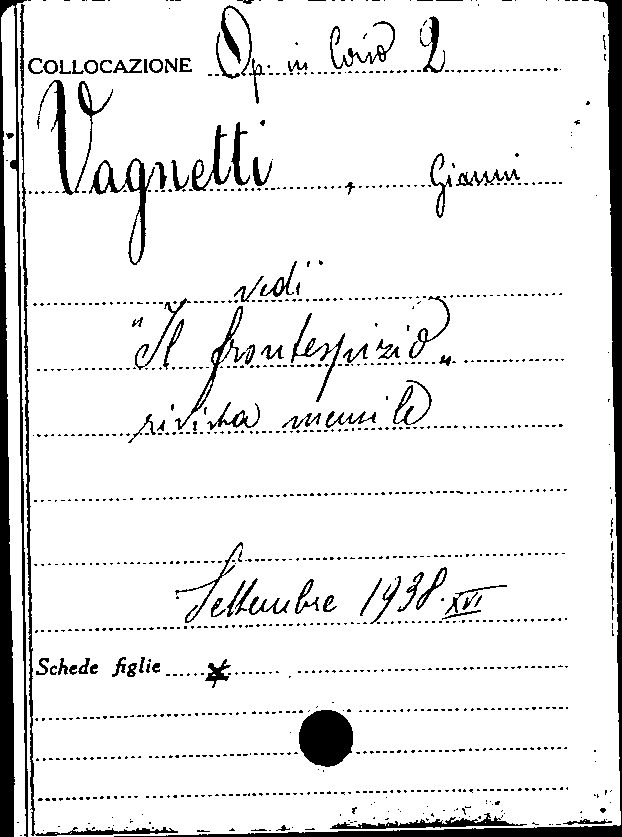 COLLOCAZIONE Op. in Corso 2
Vagnetti, Gianni
vedi
"Il frontespizio"
rivista mensile
Settembre 1938. XVI
Schede figlie x